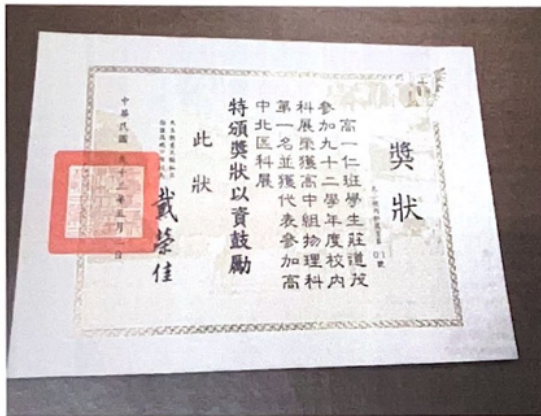 獎狀
01號
高一仁班學生莊道茂
參加九十二學年度校內
科展榮獲高中組物理科
第一名並獲代表參加高
中北區科展
特頒獎狀以資鼓勵
此狀
戴榮佳
中華民國九十三年五月一日